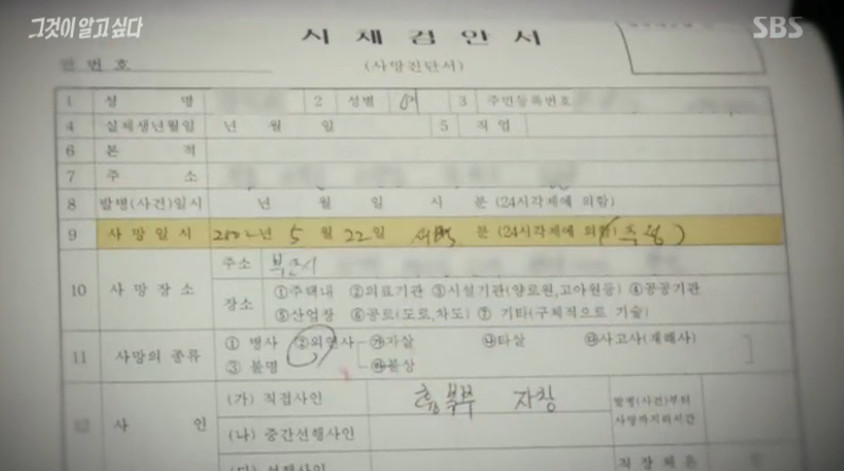 그것이 알고싶다
SBS
시체검안서
번호
(사망진단서)
1 성 명 2 성별 여 3 주민등록번호
4 실제생년월일 년 월 일 5 직업
6 본 적
7 주 소
8 발병(사건)일시 년 월 일 시 분 (24시각제에 의함)
9 사망일시 2002년 5 월 22일 새벽 분 (24시각제에 의함) (추정)
10 사망장소 주소 부산시
장소 ①주택내 ②의료기관 ③시설기관(양로원,고아원등) ④공공기관
⑤산업장 ⑥공로(도로,차도) ⑦ 기타(구체적으로 기술)
11 사망의 종류 ① 병사 ②외인사 ㉮자살 ㉯타살 ㉰사고사(재해사)
③ 불명 ㉱불상
사 인 (가) 직접사인 흉복부 자창 발병(사건)부터
사망까지의시간
(나) 중간선행사인